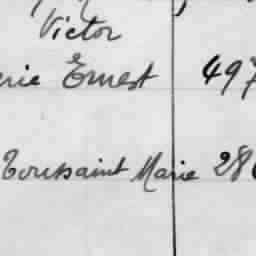 Victor
erie Ernest 497
Toussaint Marie 28